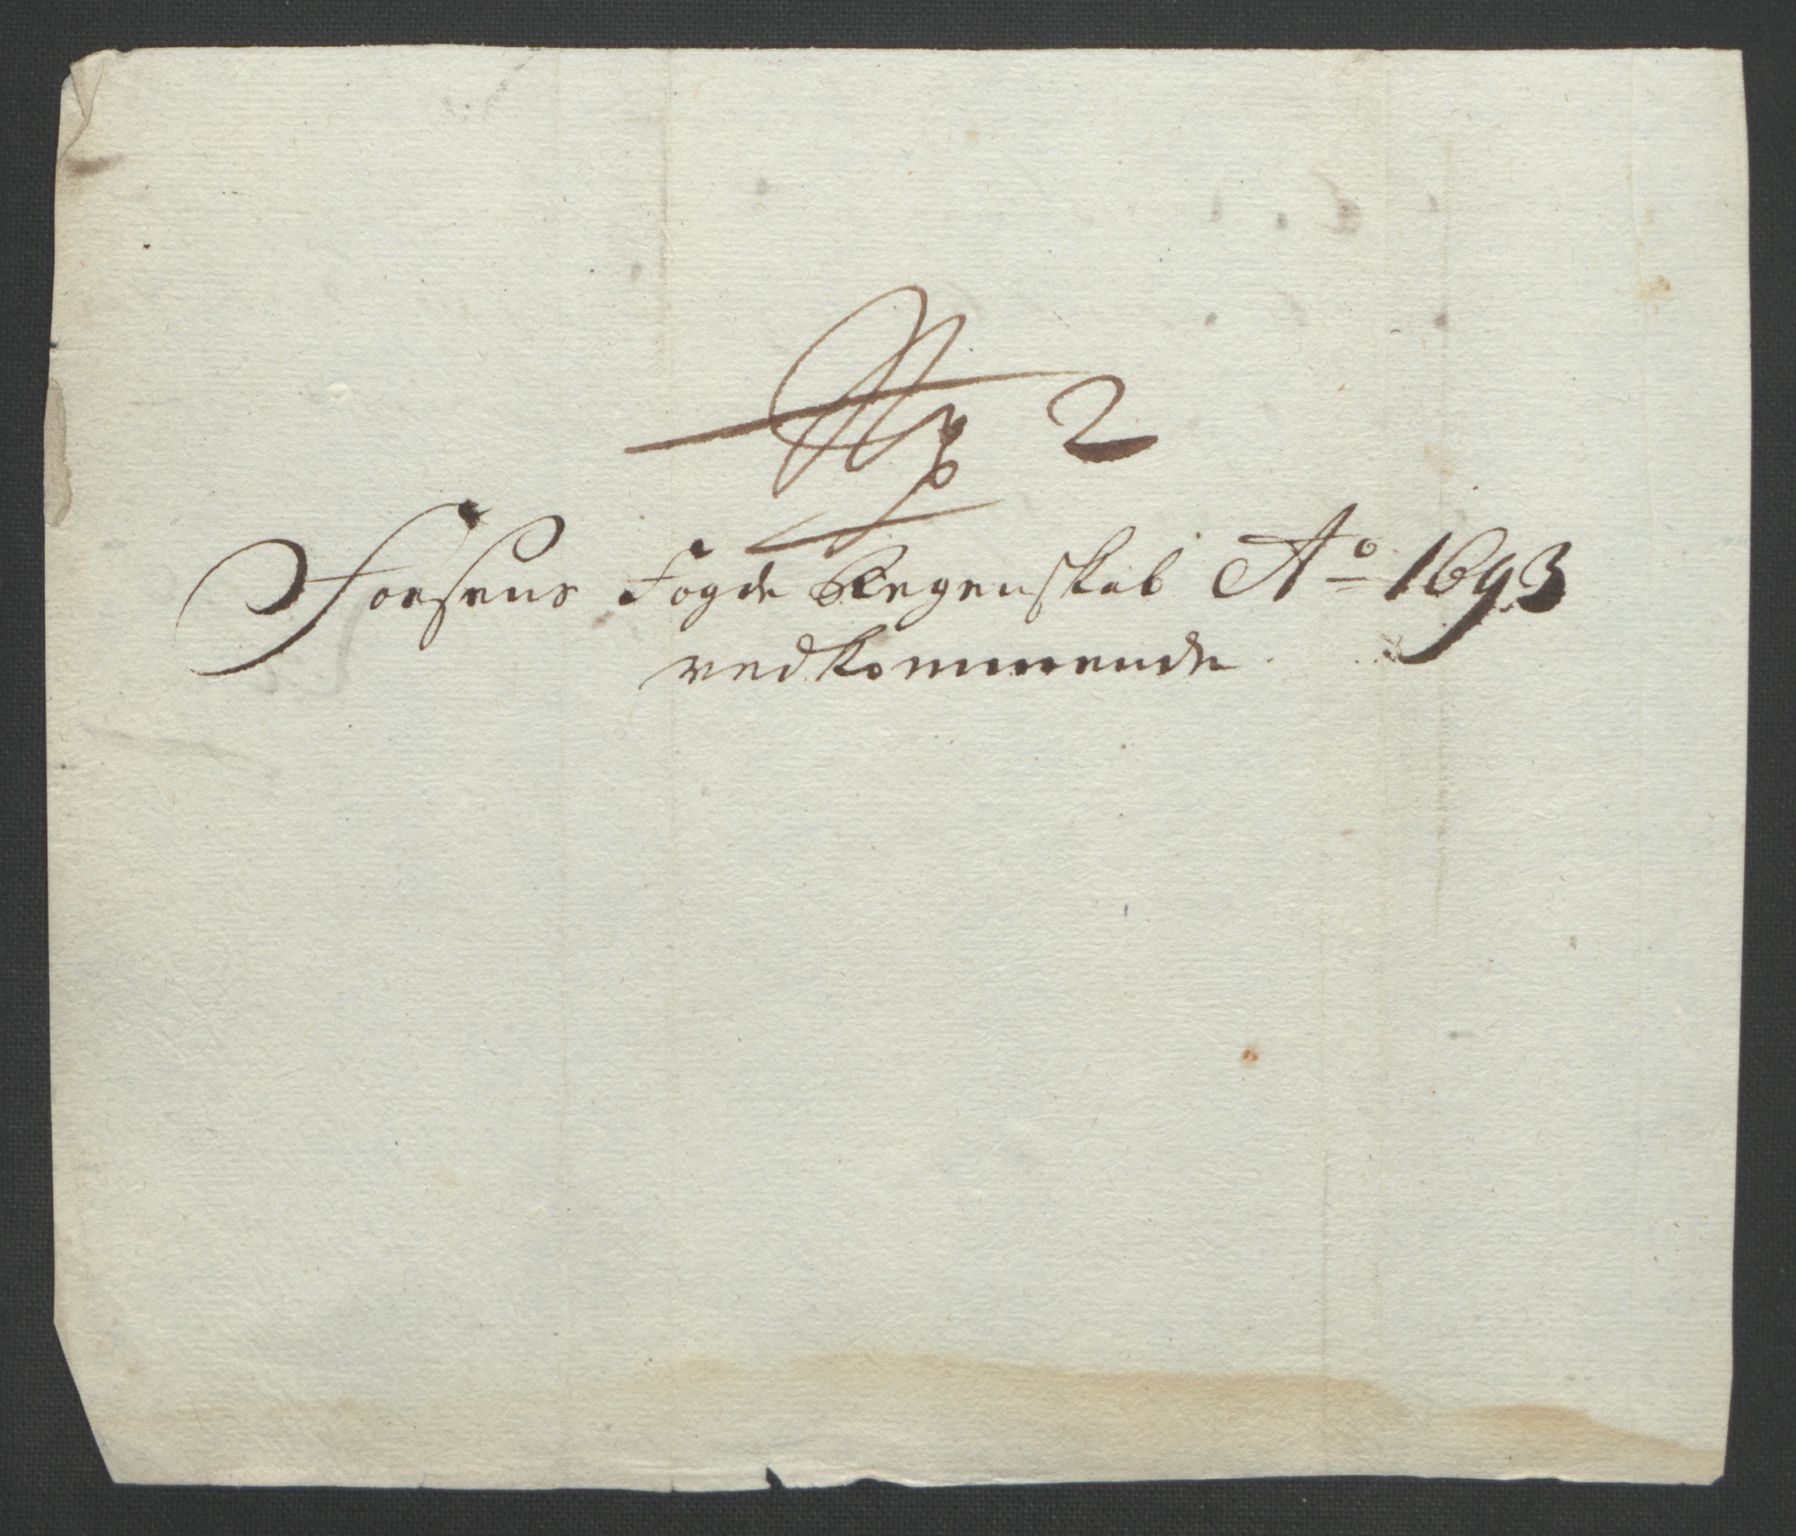 No 2
Fosens Fogde Regenskab Ao 1693
vedkommende